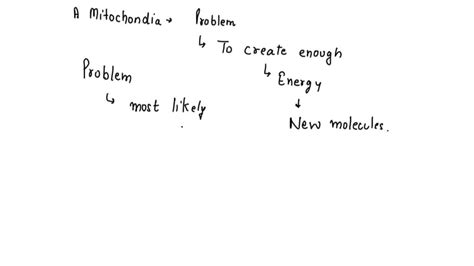 A Mitochondia → Problem
↳ To create enough
↳ Energy
Problem
↳ most likely
↓
New molecules.